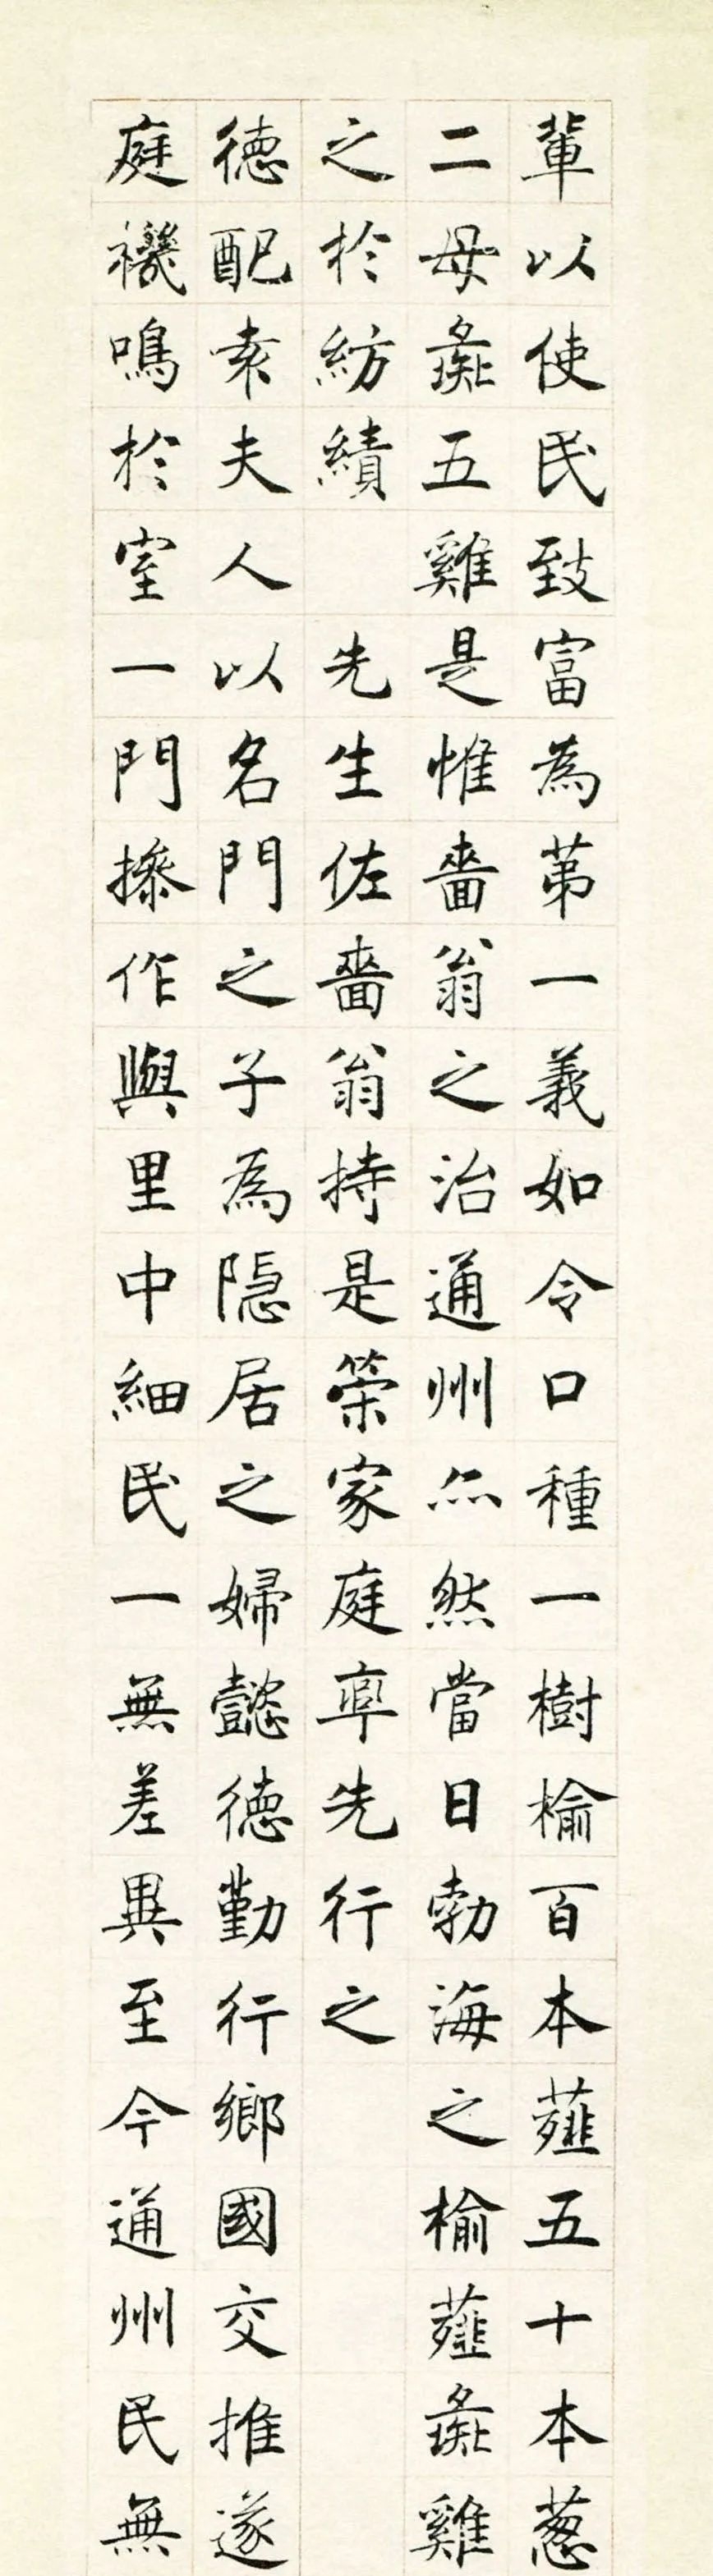 輩以使民致富為第一義如令口種一樹榆百本薤五十本葱
二母彘五雞是惟嗇翁之治通州亦然當日勃海之榆薤彘雞
之於紡績　先生佐嗇翁持是策家庭率先行之
德配袁夫人以名門之子為隱居之婦懿德勤行鄉國交推遂
庭機鳴於室一門操作與里中細民一無差異至今通州民無